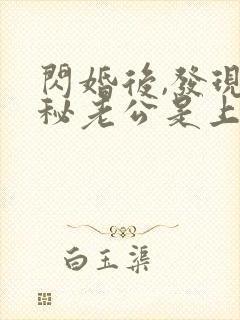 閃婚後,發現
秘老公是上
白玉渠